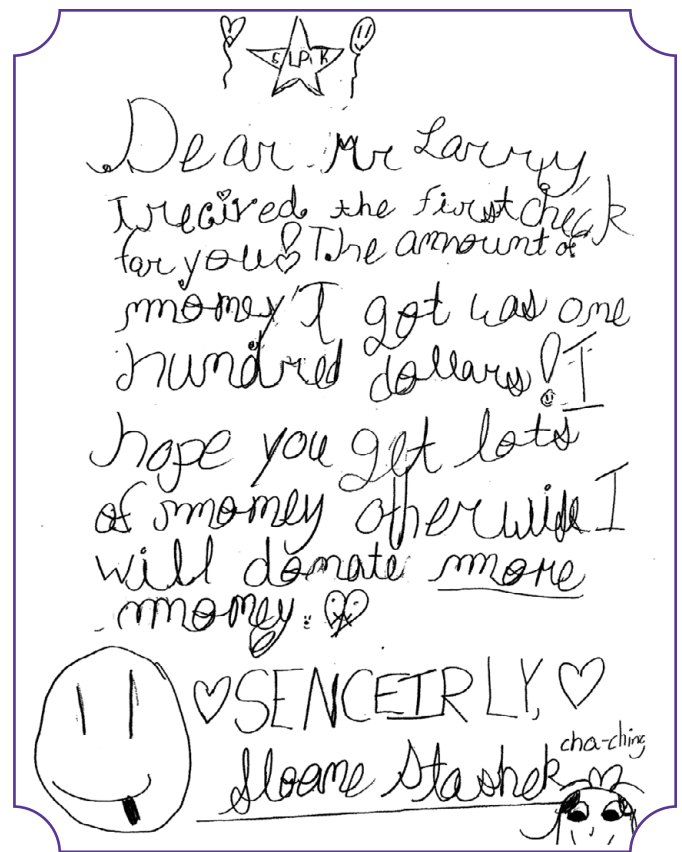 SLPiK
Dear Mr Larry,
I recived the first check
for you! The amount of
money I got was one
hundred dollars! I
hope you get lots
of money otherwise I
will donate more
money.
SENCEIRLY,
cha-ching
Sloane Stashek